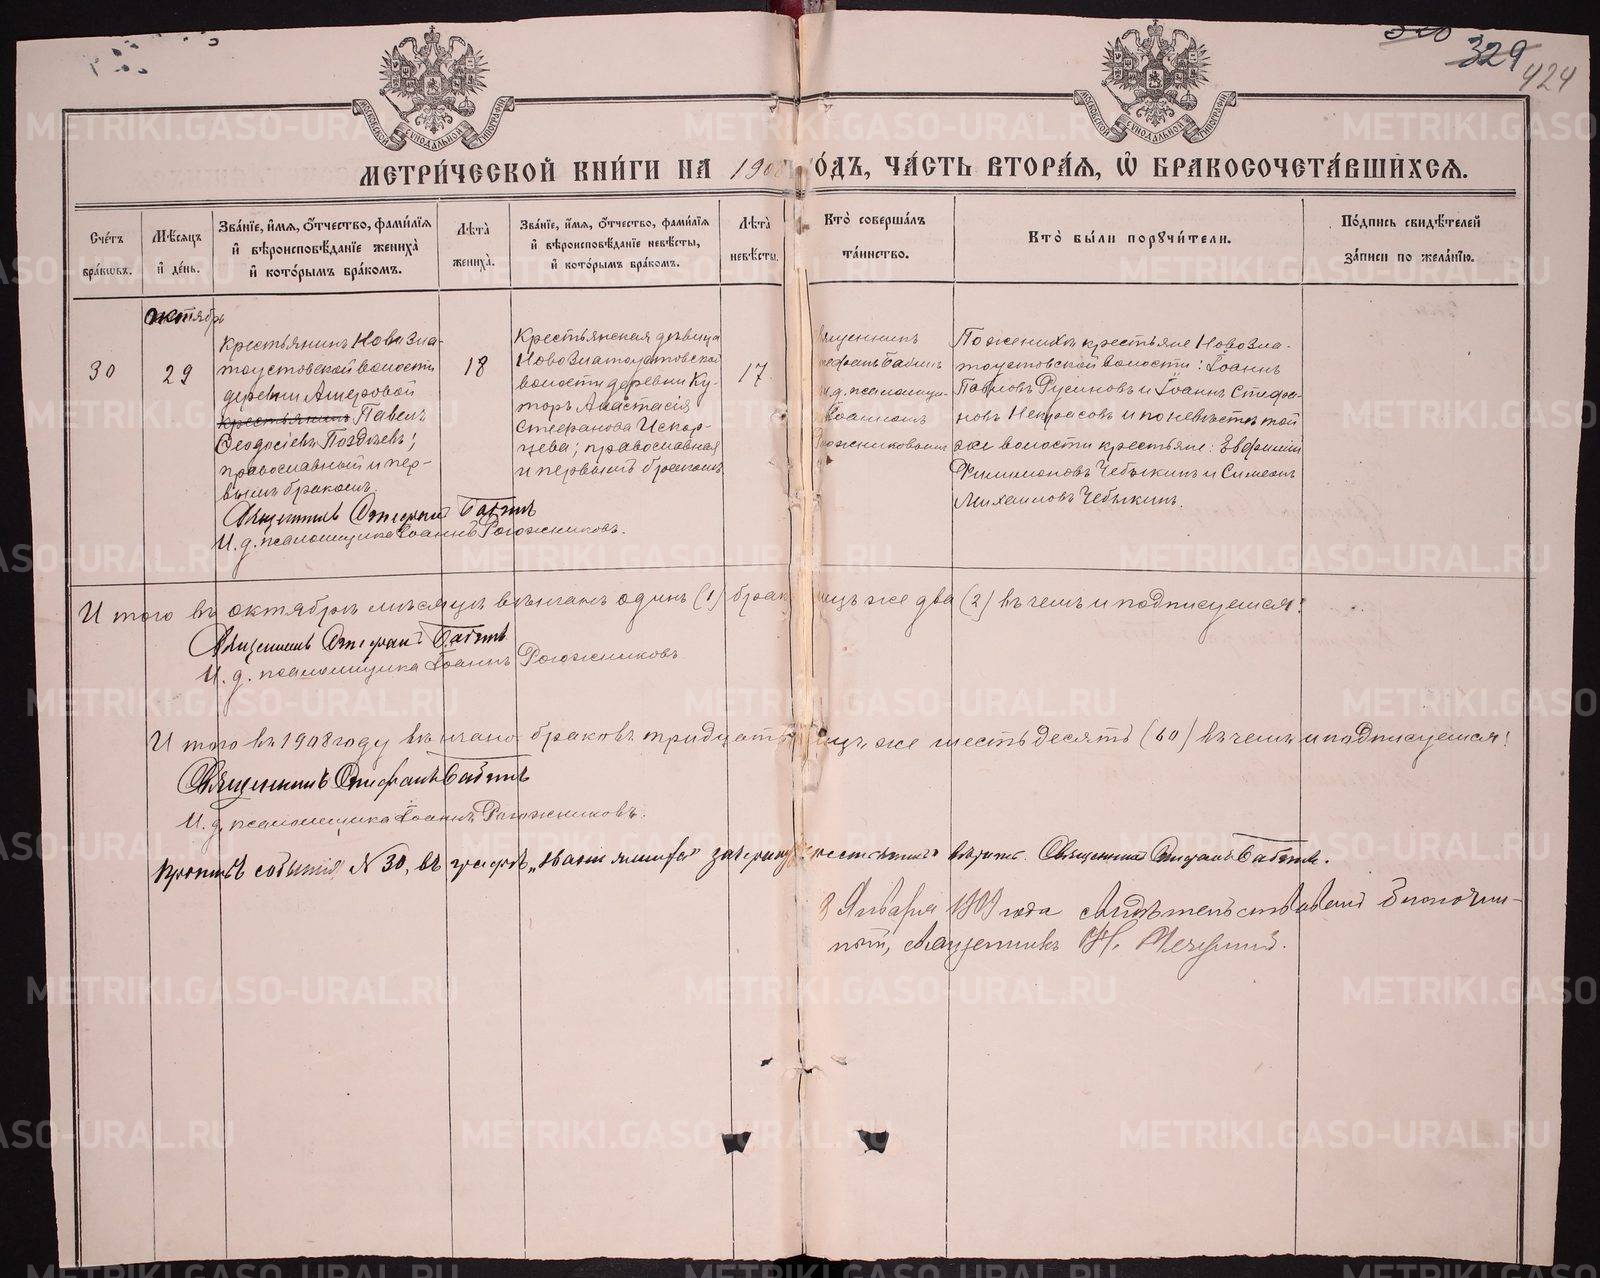 329
424
МОСКОВСКОЙ СѴНОДАЛЬНОЙ ТИПОГРАФІИ
МОСКОВСКОЙ СѴНОДАЛЬНОЙ ТИПОГРАФІИ
МЕТРИ́ЧЕСКОЙ КНИ́ГИ НА 190 ѲДЪ, ЧА́СТЬ ВТОРА́Я, Ѡ҆ БРАКОСОЧЕТА́ВШИХСЯ.
Сче́тъ бра́ковъ.
Мѣ́сяцъ и҆ де́нь.
Зва́нїе, и҆́мя, ѻ҆́тчество, фами́лїя и҆ вѣроисповѣ́данїе жениха̀ и҆ кото́рымъ бра́комъ.
Лѣта̀ жениха̀.
Зва́нїе, и҆́мя, ѻ҆́тчество, фами́лїя и҆ вѣроисповѣ́данїе невѣ́сты, и҆ кото́рымъ бра́комъ.
Лѣта̀ невѣ́сты.
Кто̀ соверша́лъ та́инство.
Кто̀ бы́ли пορꙋчи́тели.
По́дпись свидѣ́телей за́писи по жела́нїю.
октябрь
30
29
Крестьянинъ Новозла-
тоустовской волости
деревни Ашеровой
крестьянинъ Павелъ
Ѳеодосіевъ Поздѣевъ;
православный и пер-
вымъ бракомъ.
18
Крестьянская дѣвица
Новозлатоустовской
волости деревни Ку-
торъ Анастасія
Стефанова Искор-
цева; православная
и первымъ бракомъ
17
Священникъ
Стефанъ Бабинъ
и.д. псаломщи-
Іоанномъ
Рогожниковымъ
По женихѣ крестьяне Новозла-
тоустовской волости: Іоаннъ
Павловъ Русиновъ и Іоаннъ Стефа-
новъ Некрасовъ и по невѣстѣ той
же волости крестьяне: Евфимій
Филимоновъ Чебыкинъ и Симеонъ
Михаиловъ Чебыкинъ.
Священникъ Стефанъ Бабинъ
И.д. псаломщика Іоаннъ Рогожниковъ.
Итого въ октябрѣ мѣсяцѣ вѣнчанъ одинъ (1) брак лицъ же два (2) въ чемъ и подписуемся:
Священникъ Стефанъ Бабинъ
И. д. псаломщика Іоаннъ Рогожниковъ
Итого въ 1908 году вѣнчано браковъ тридцать лицъ же шестьдесятъ (60) въ чемъ и подписуемся:
Священникъ Стефанъ Бабинъ
И. д. псаломщика Іоаннъ Рогожниковъ.
Противъ событія № 30, въ графѣ „званіе жениха" зачеркнутое „крестьянинъ" вѣрно. Священникъ Стефанъ Бабинъ.
Января 1909 года свидѣтельствовалъ Благочин-
ный, священникъ Н.